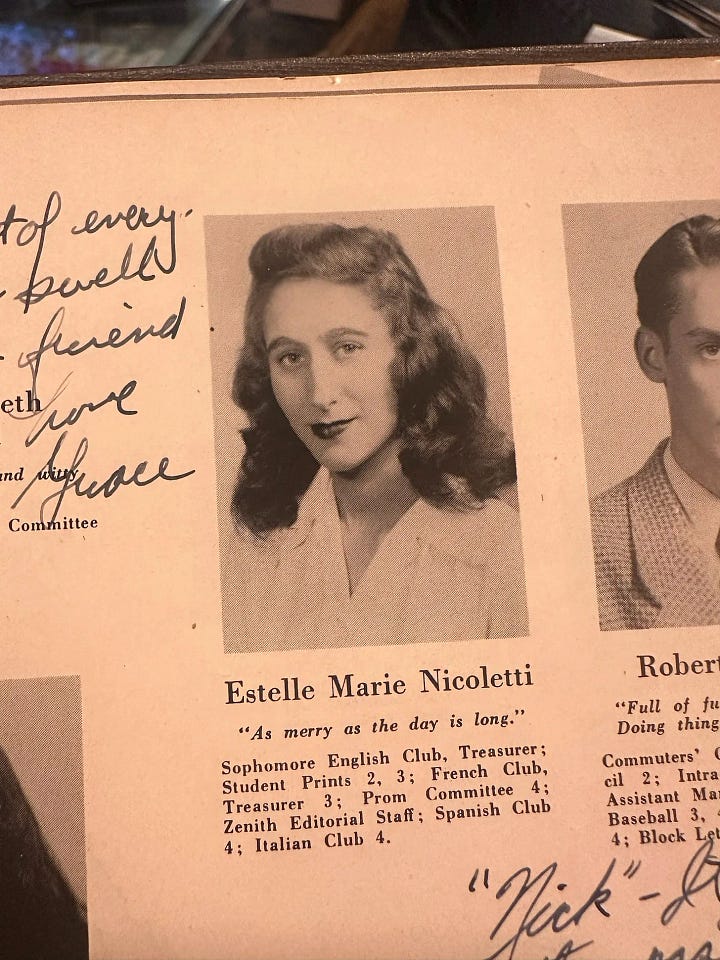 of every.
swell
friend
eth
Love
and witty
Grace
Committee
Estelle Marie Nicoletti
"As merry as the day is long."
Sophomore English Club, Treasurer;
Student Prints 2, 3; French Club,
Treasurer 3; Prom Committee 4;
Zenith Editorial Staff; Spanish Club
4; Italian Club 4.
Robert
"Full of fu
Doing thing
Commuters' C
cil 2; Intra
Assistant Ma
Baseball 3,
4; Block Let
"Nick" -